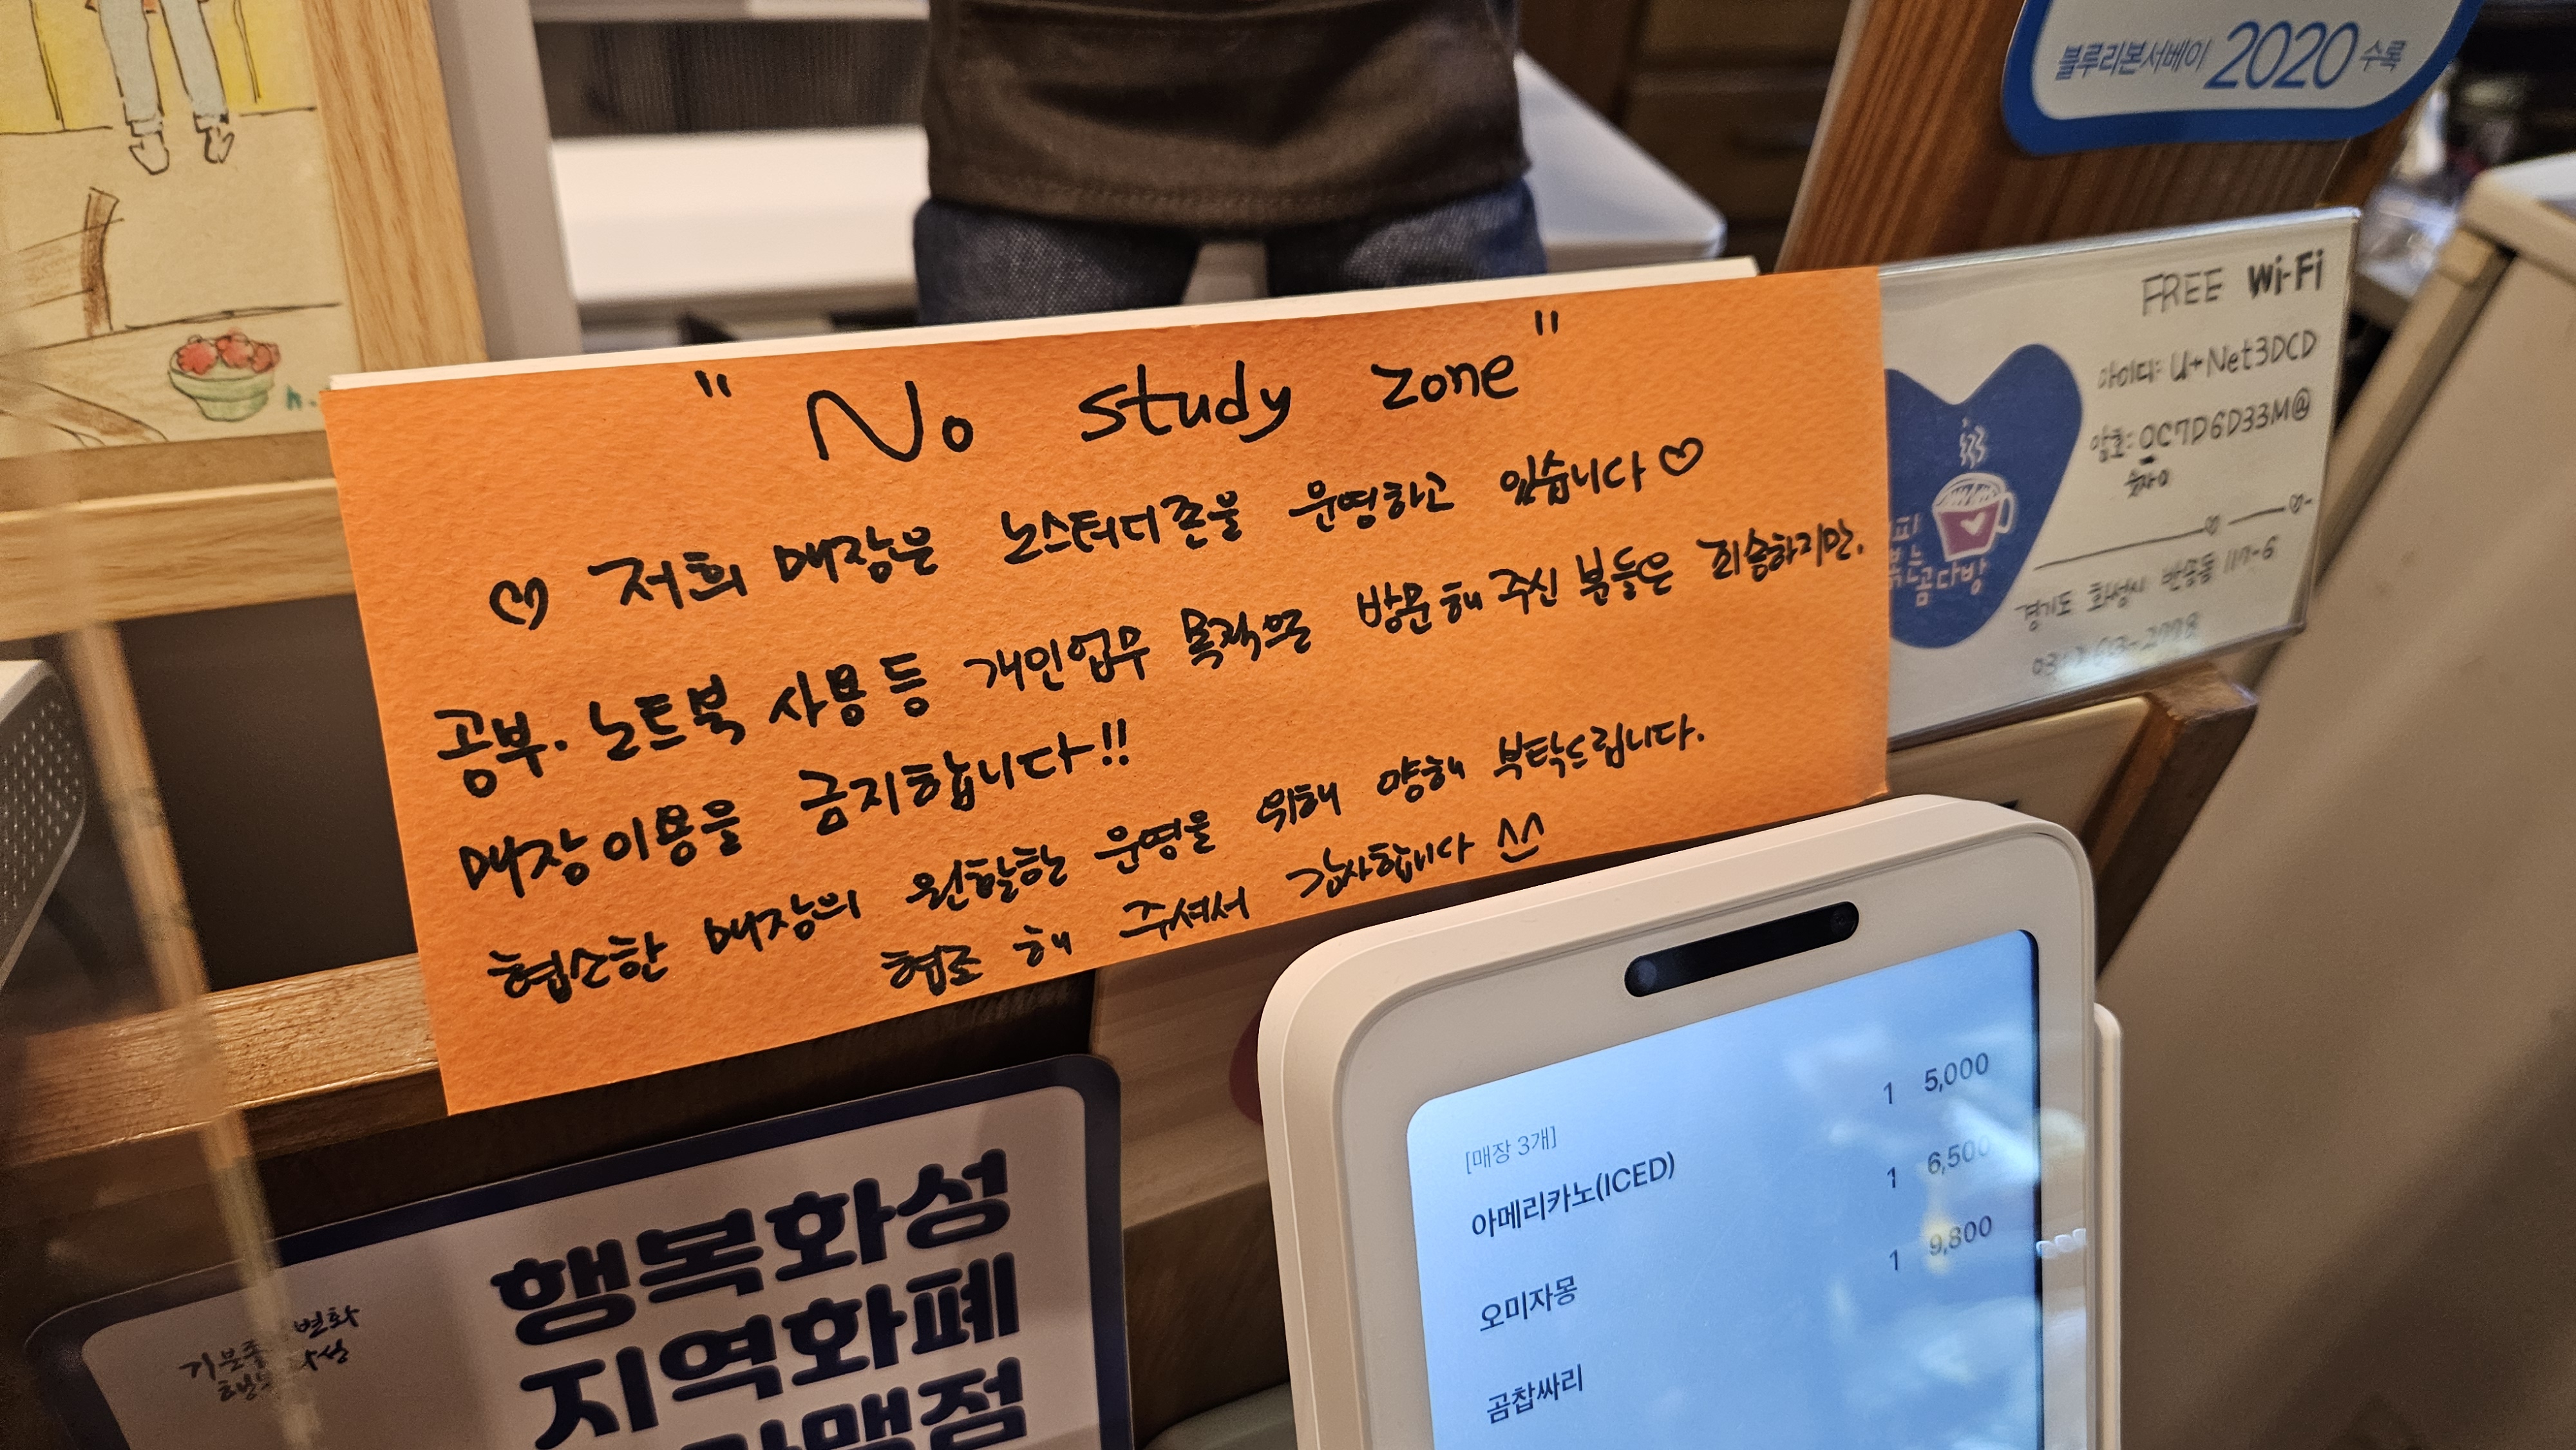 블루리본서베이 2020 수록
" No study zone "
♡ 저희 매장은 노스터디존을 운영하고 있습니다 ♡
공부. 노트북 사용 등 개인업무 목적으로 방문해 주신 분들은 죄송하지만.
매장이용을 금지합니다!!
협소한 매장의 원활한 운영을 위해 양해 부탁드립니다.
협조 해 주셔서 감사합니다 ^^
FREE Wi-Fi
아이디: U+Net3DCD
암호: 0C7D6D33M@
숫자0
곰다방
경기도 화성시 반송동 117-6
행복화성
지역화폐
[매장 3개]
아메리카노(ICED) 1 5,000
오미자몽 1 6,500
곰찹싸리 1 9,800